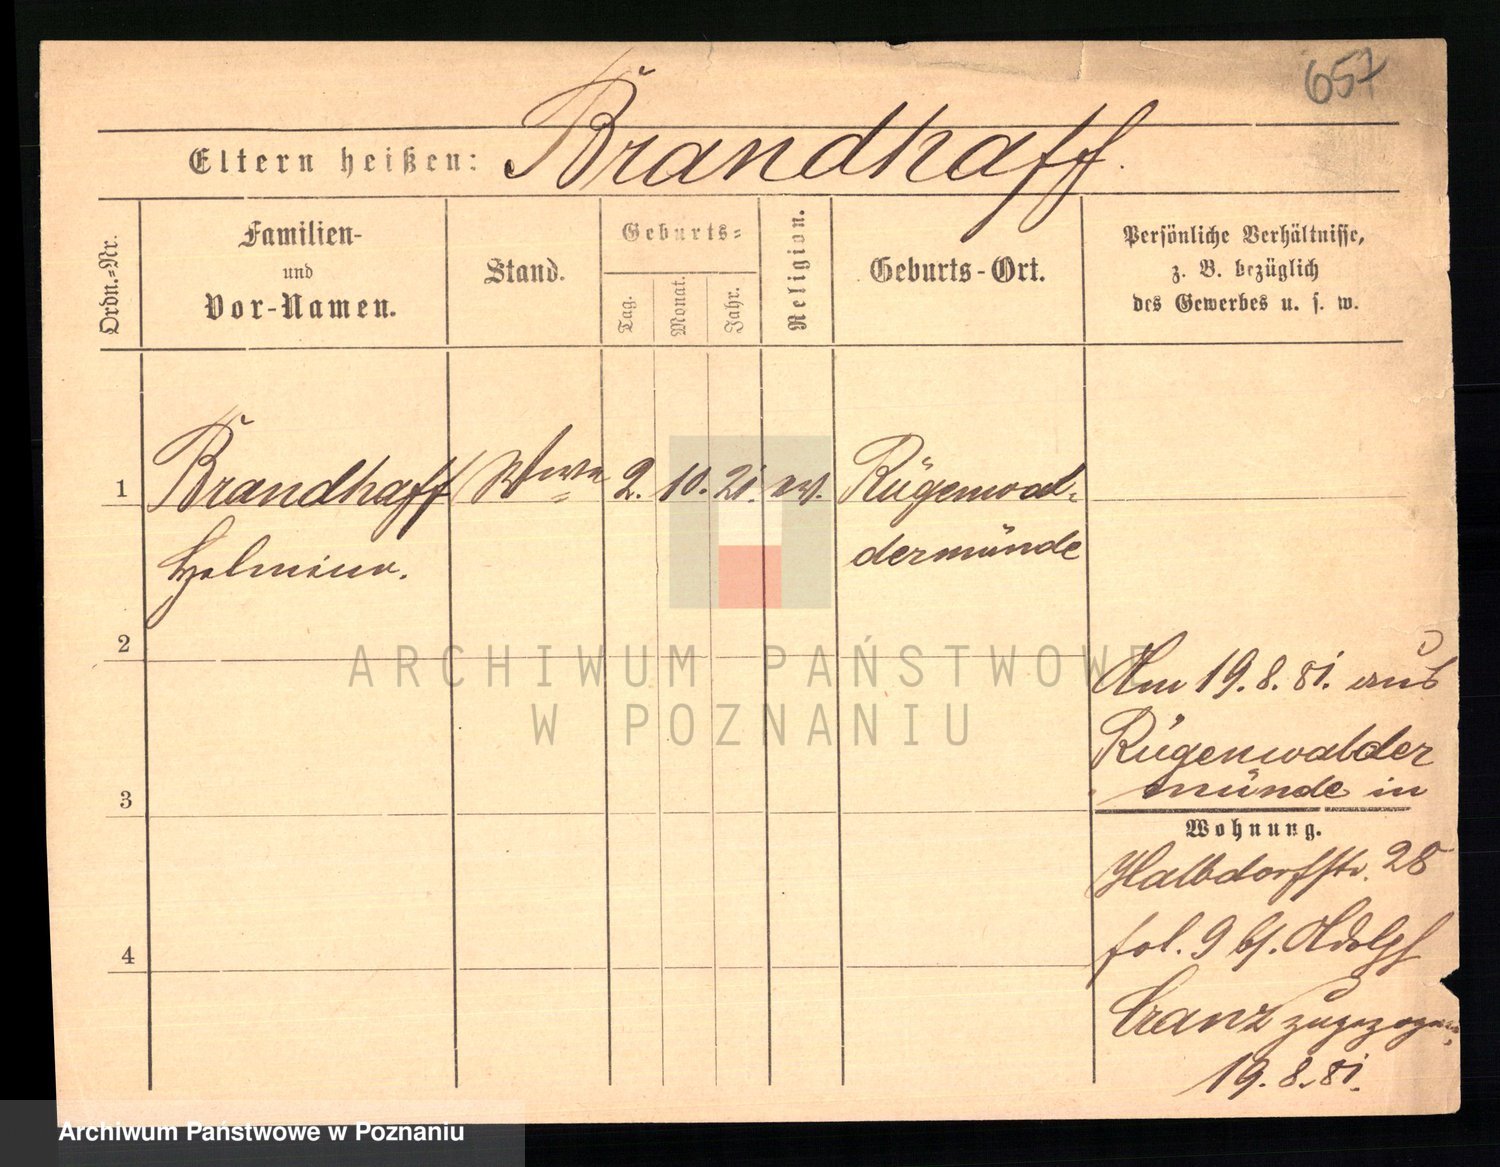 657
Eltern heißen: Brandhaff.
Ordn.=Nr.
Familien-
und
Vor-Namen.
Stand.
Geburts=
Tag.
Monat.
Jahr.
Religion.
Geburts-Ort.
Persönliche Verhältnisse,
z. B. bezüglich
des Gewerbes u. s. w.
1 Brandhaff Wwe 2. 10. 21. ev. Rügenwal-
dermünde
2
Am 19. 8. 81. aus
Rügenwalder
münde in
3
Wohnung.
Halbdorfstr. 28
fol. 9 b/. Adolf
Cranz zugezogen,
4
19. 8. 81.
ARCHIWUM PAŃSTWOWE
W POZNANIU
Archiwum Państwowe w Poznaniu